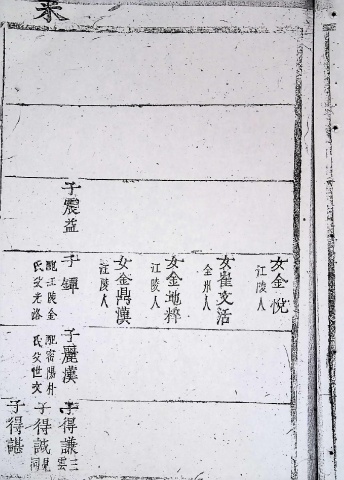 子震益
女金悅
江陵人
女崔文活
全州人
女金地粹
江陵人
女金鼎漢
江陵人
子鐔
配江陵金
氏父光洛
配密陽朴
氏父世文
子麗漢
子得謙
三
雲
子得誠
見
同
子得諶